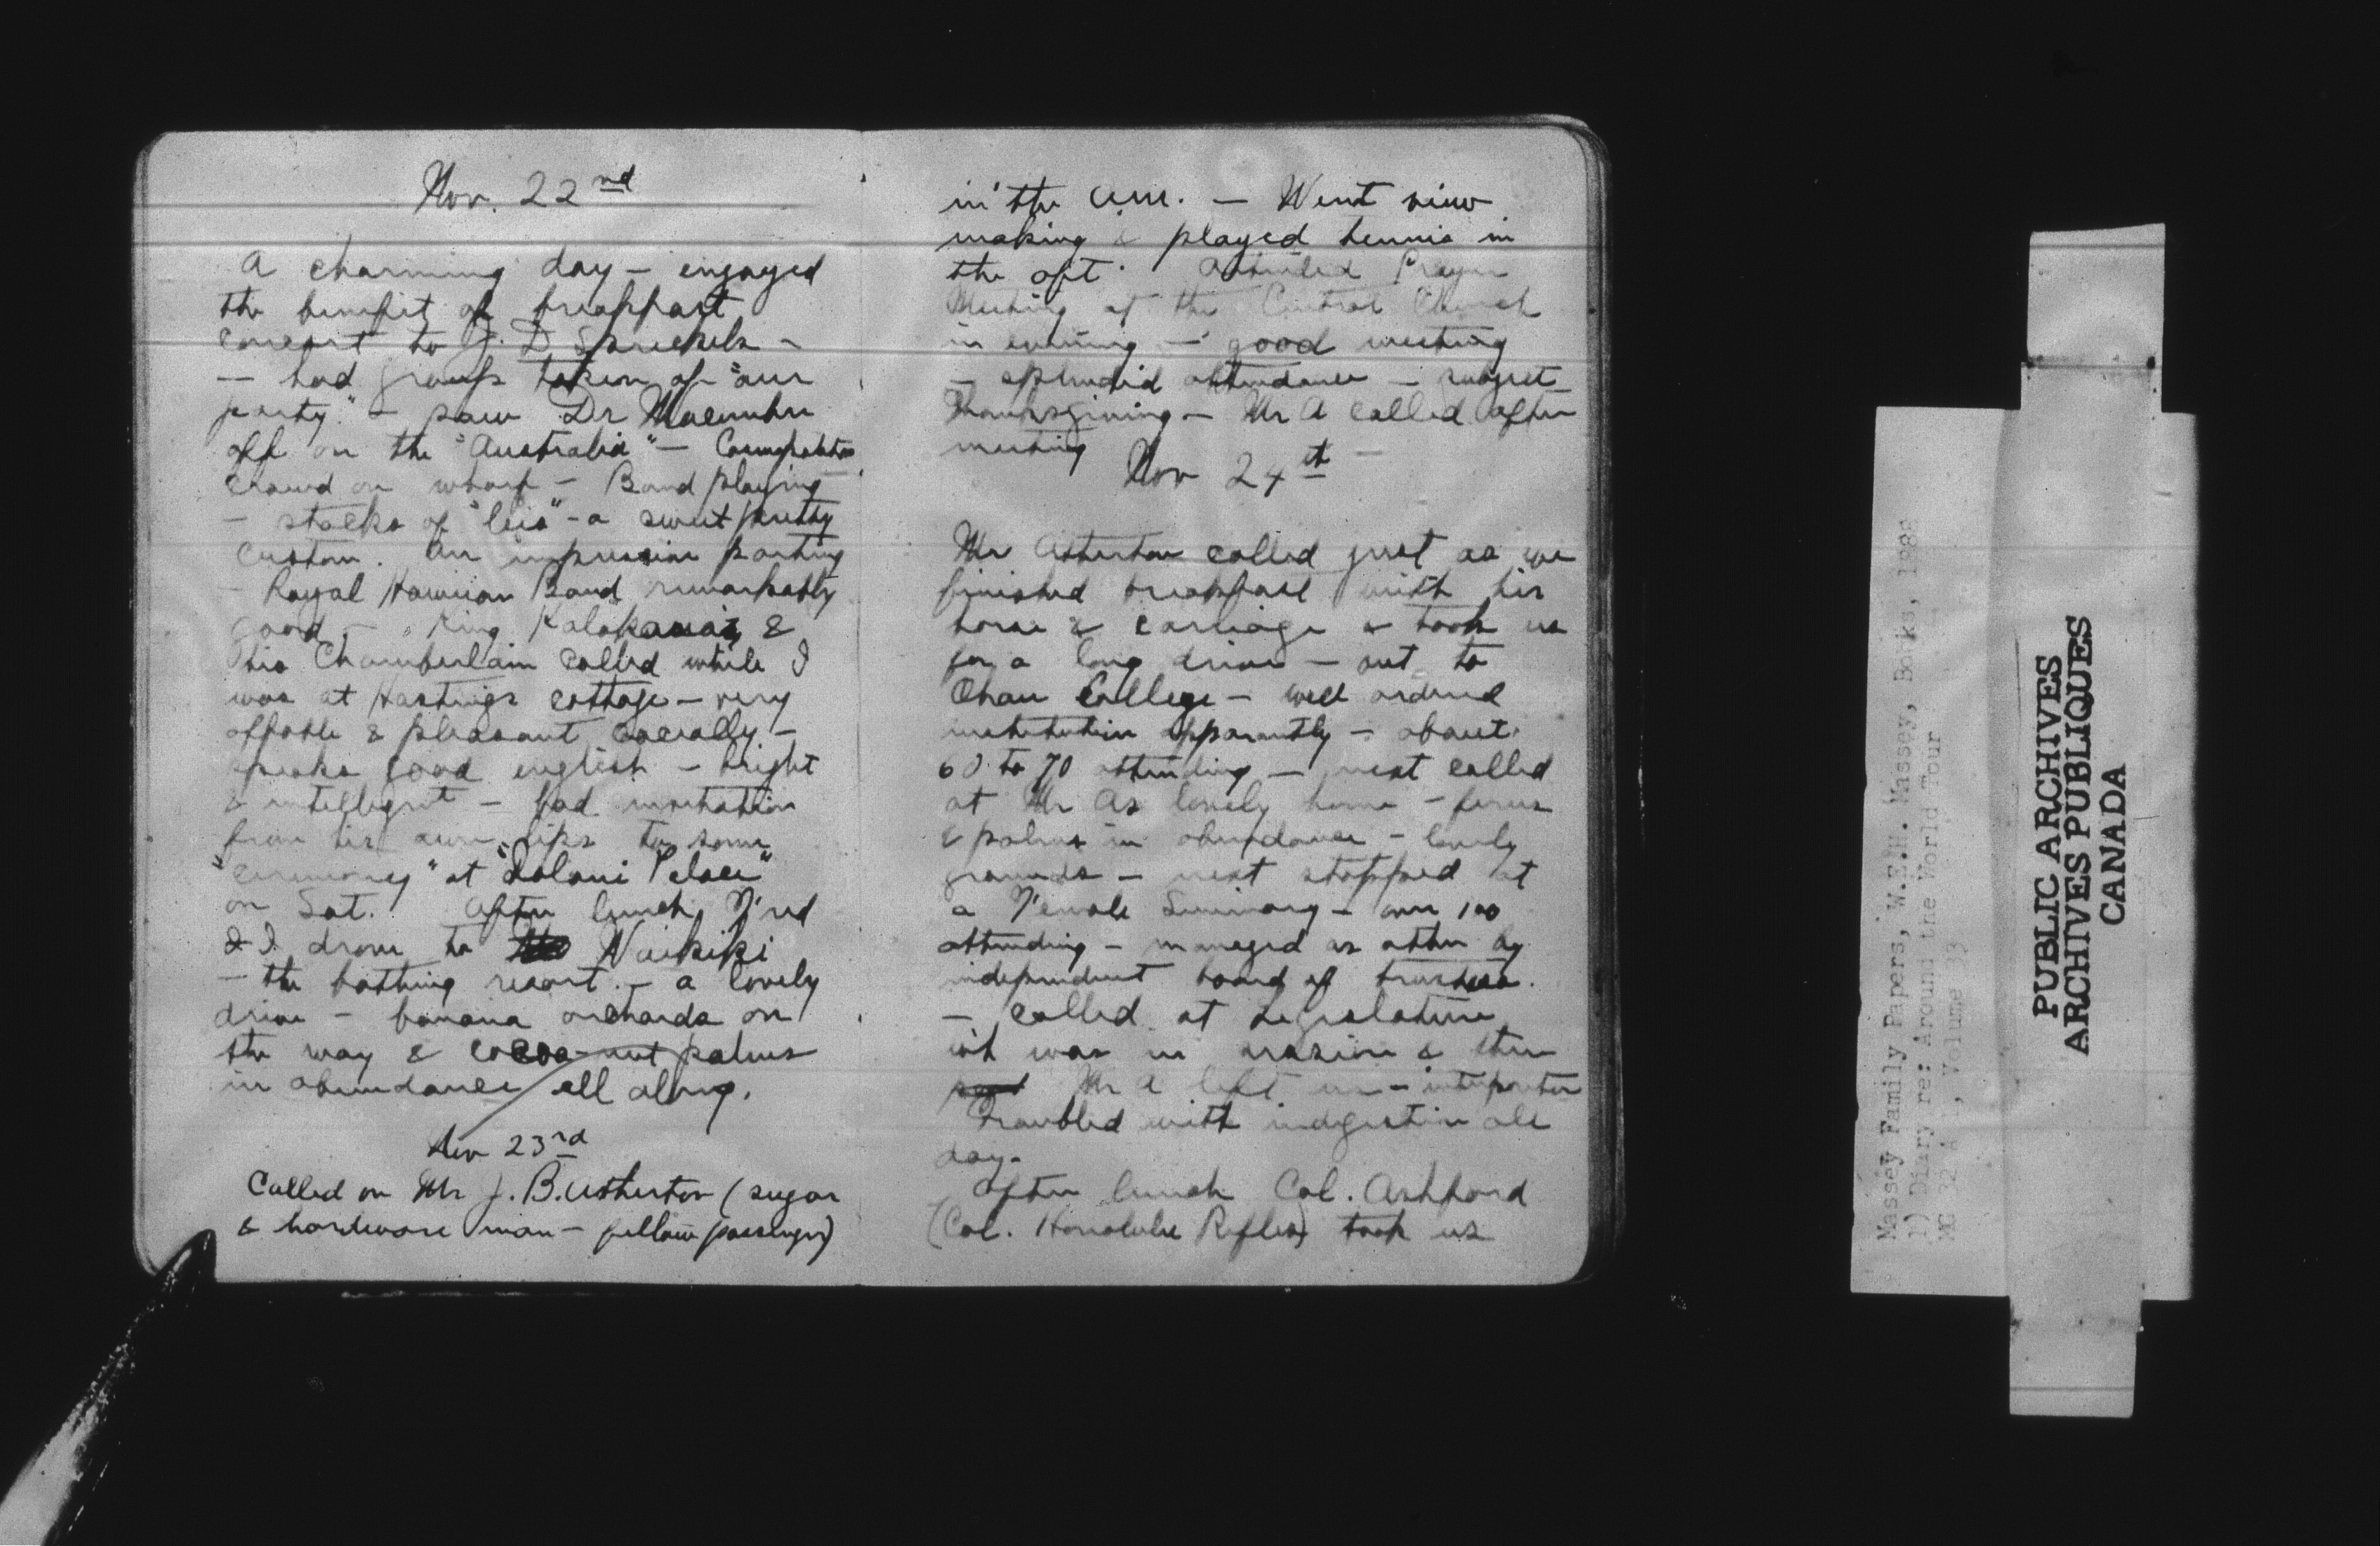 Nov. 22nd
A charming day – enjoyed
the benefit of breakfast
concert to J. D Spreckels –
– had groups taken of "our
party" – saw Dr
off on the "Australia" – Cosmopolitan
crowd on wharf – Band playing
– stacks of "leis" – a sweet pretty
custom. An impressive parting
– Royal Hawiian Band remarkably
good – King &
his Chamberlain called while I
was at Hastings cottage – very
affable & pleasant socially –
speaks good english – bright
& intelligent – had invitation
from his own lips to some
"ceremony" at "Iolani Palace"
on Sat. After lunch Fred
& I drove to Waikiki
– the bathing resort. – a lovely
drive – banana orchards on
the way & cocoa-nut palms
in abundance all along.
Nov 23rd
Called on Mr J. B. Atherton (sugar
& hardware man – fellow passenger)
in the a.m. – Went view
making & played tennis in
the aft. Attended Prayer
Meeting at the Central Church
in evening – good meeting
– splendid attendance – subject
Thanksgiving – Mr A called after
meeting –
Nov 24th
Mr Atherton called just as we
finished breakfast with his
horse & carriage & took us
for a long drive – out to
Ohau College – well ordered
institution apparantly – about
60 to 70 attending – next called
at Mr As lovely home – ferns
& palms in abundance – lovely
grounds – next stopped at
a Female Seminary – over 100
attending – managed as other by
independent board of trustees.
– called at Legislature
wh was in session & then
Mr A left us – interpreter
Troubled with indigestion all
day.
After lunch Col. Ashford
(Col. Honolulu Rifles) took us
Massey Family Papers, W.E.H. Massey, Books, 1988
1) Diary re: Around the World Tour
MG 32 A 1, Volume 33
PUBLIC ARCHIVES
ARCHIVES PUBLIQUES
CANADA